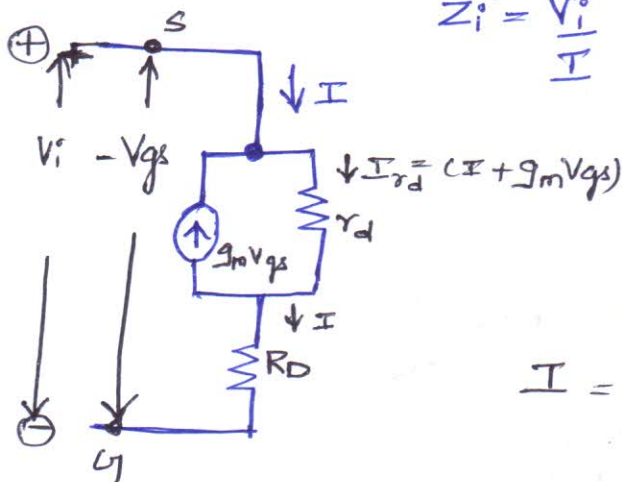 S
Zi = Vi / I
+
↓ I
Vi
- Vgs
↓ Ird = (I + gmVgs)
rd
gmVgs
↓ I
RD
I =
-
G